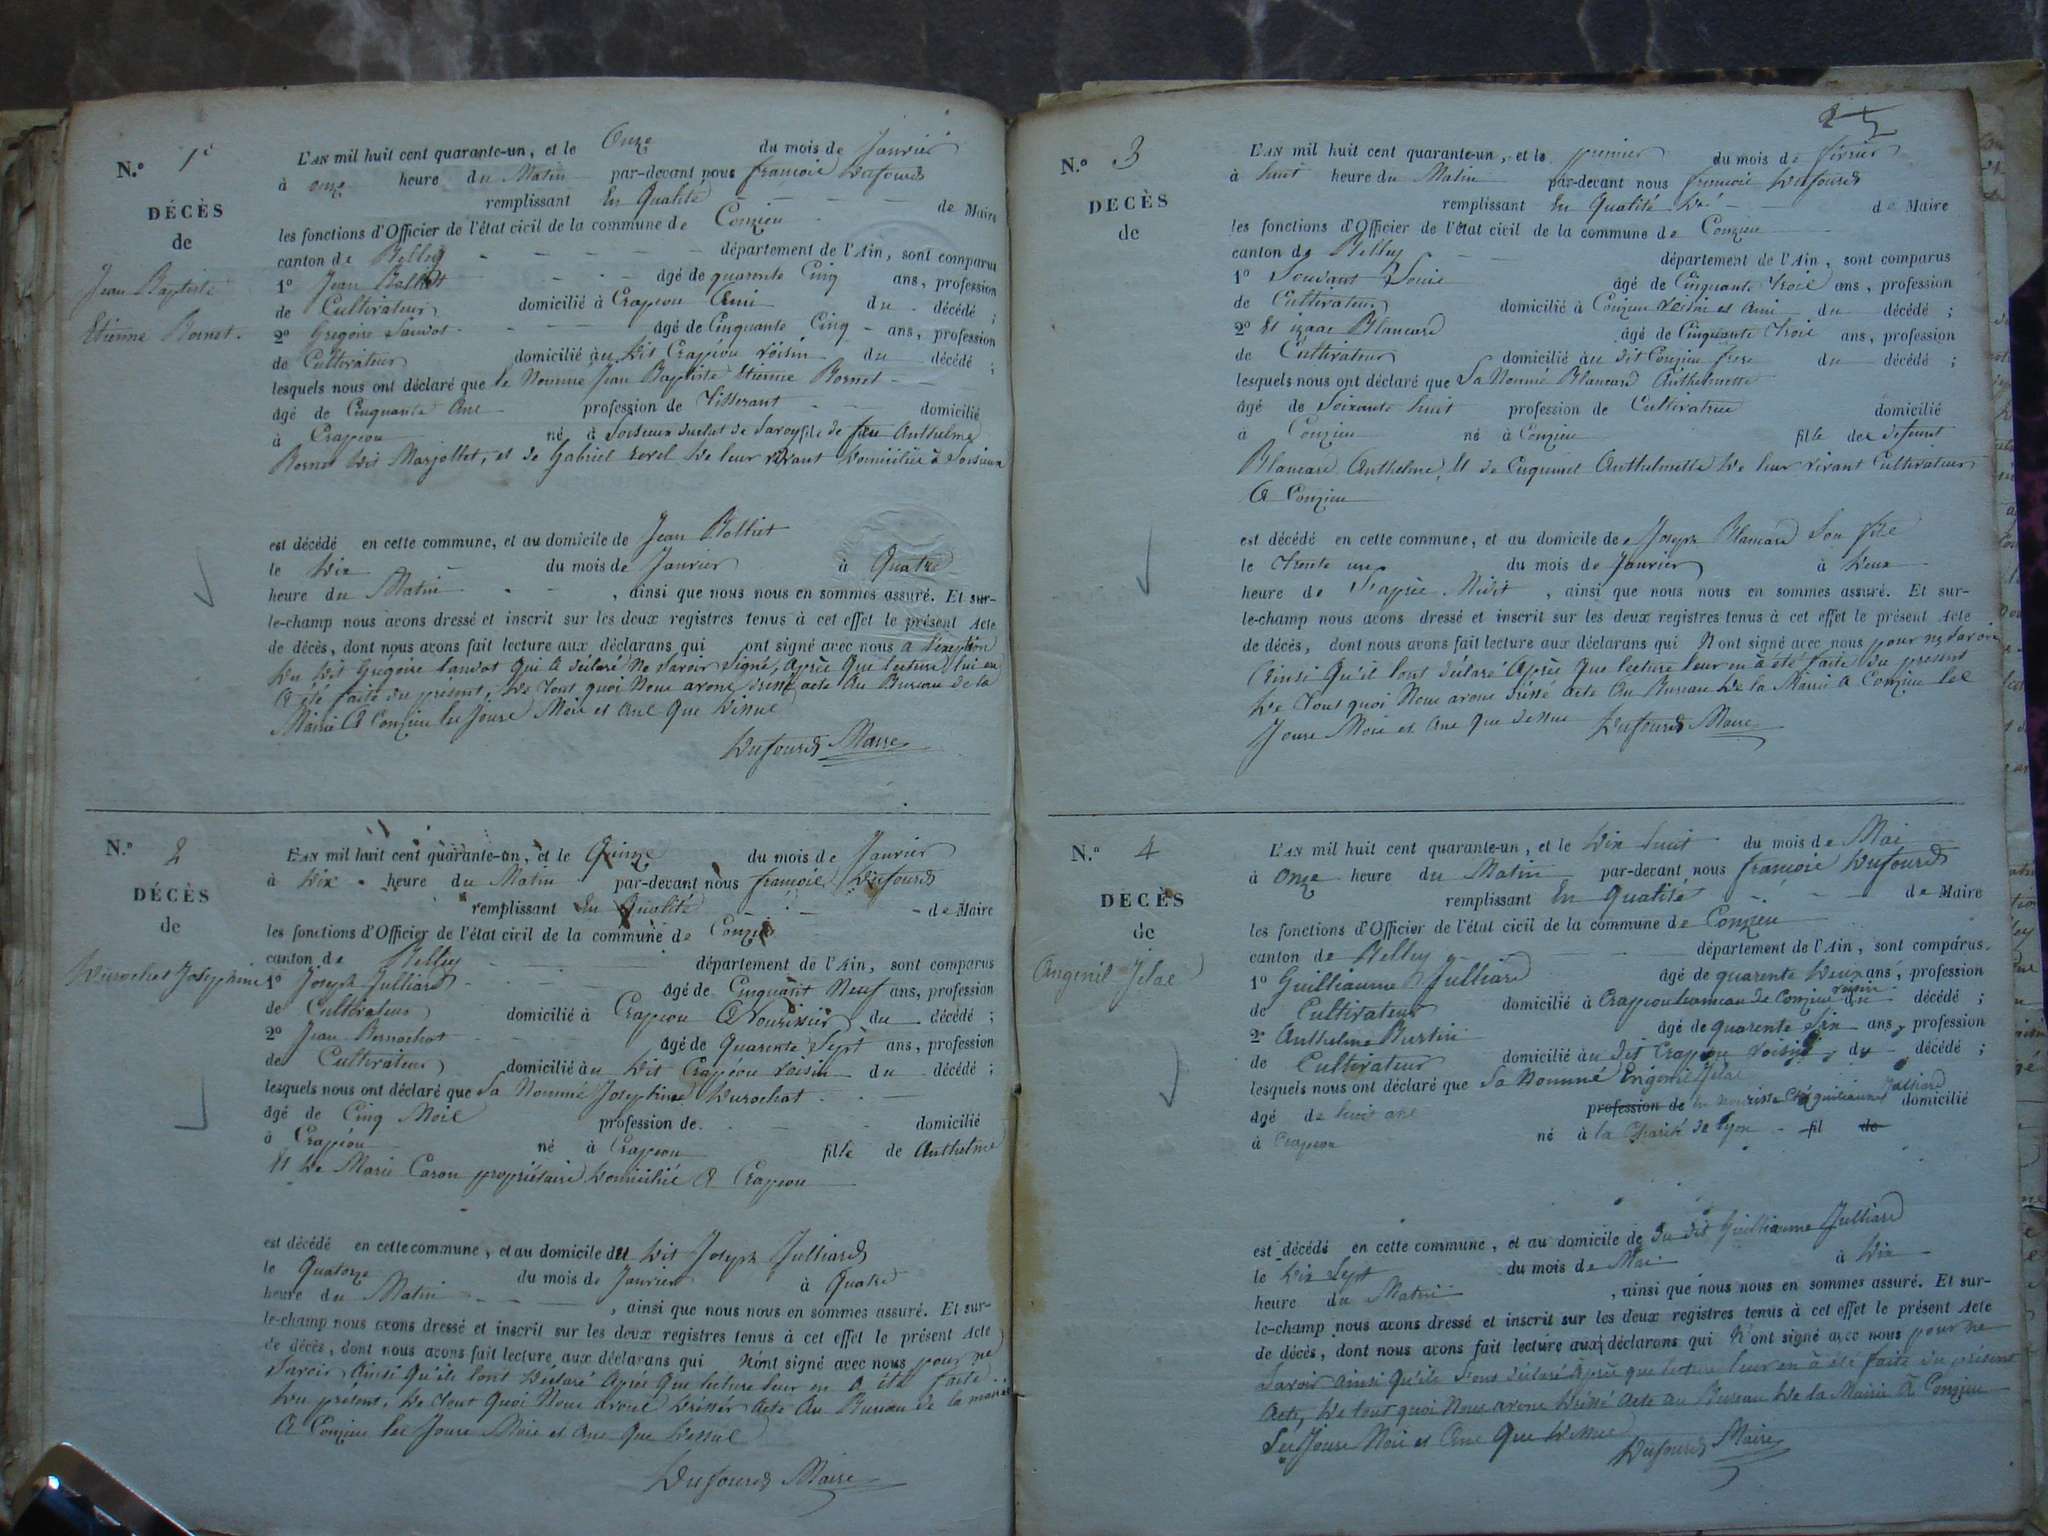 N.º 1e
DÉCÈS
de
Jean Baptiste
Etienne Bornet.
L'AN mil huit cent quarante-un, et le Onze du mois de Janvier
à onze heure du Matin par-devant nous françois Dufour
remplissant En Qualité de Maire
les fonctions d'Officier de l'état cicil de la commune de Conzieu
canton de Belley département de l'Ain, sont comparus
1º Jean âgé de quarente Cinq ans, profession
de Cultivateur domicilié à Crapeou Ami du décédé ;
2º Gregoire âgé de Cinquante Cinq ans, profession
de Cultivateur domicilié au dit Crapeou voisin du décédé ;
lesquels nous ont déclaré que le Nommé Jean Baptiste Etienne Bornet
âgé de Cinquante Ans profession de Tisserant domicilié
à Crapeou né à de fils de feu Anthelme
Bornet dit Marjollet, et de Gabriel De leur vivant Domicilié à
est décédé en cette commune, et au domicile de Jean
le Dix du mois de Janvier à Quatre
heure du Matin , ainsi que nous nous en sommes assuré. Et sur-
le-champ nous avons dressé et inscrit sur les deux registres tenus à cet effet le présent Acte
de décès, dont nous avons fait lecture aux déclarans qui ont signé avec nous a
Du dit Gregoire qui a déclaré Ne Savoir Signé, Après Que lecture lui en
A été faite du present, De Tout quoi Nous avons acte Au Bureau de la
Mairie A Conzieu les Jours Mois et ans Que Dessus
Dufour Maire
N.º 2
DÉCÈS
de
Durochat Josephine
L'AN mil huit cent quarante-un, et le Quinze du mois de Janvier
à Dix heure du Matin par-devant nous françois Dufour
remplissant En Qualité de Maire
les fonctions d'Officier de l'état civil de la commune de Conzieu
canton de Belley département de l'Ain, sont comparus
1º Joseph Julliard âgé de Cinquant Neuf ans, profession
de Cultivateur domicilié à Crapeou du décédé ;
2º Jean âgé de Quarente Sept ans, profession
de Cultivateur domicilié au Dit Crapeou voisin du décédé ;
lesquels nous ont déclaré que La Nommé Josephine Durochat
âgé de Cinq Mois profession de domicilié
à Crapeou né à Crapeou fille de Anthelme
Et De Marie Caron propriétaire Domicilié A Crapeou
est décédé en cette commune, et au domicile du Dit Joseph Julliard
le Quatorze du mois de Janvier à Quatre
heure du Matin , ainsi que nous nous en sommes assuré. Et sur-
le-champ nous avons dressé et inscrit sur les deux registres tenus à cet effet le présent Acte
de décès, dont nous avons fait lecture aux déclarans qui N'ont signé avec nous pour ne
Savoir Ainsi Qu'ils l'ont Déclaré Après Que lecture leur en A été faite
Du présent, De Tout Quoi Nous avons Acte Au Bureau de la mairie
A Conzieu les Jours Mois et ans Que Dessus
Dufour Maire
2
N.º 3
DECÈS
de
L'AN mil huit cent quarante-un, et le premier du mois de février
à huit heure du Matin par-devant nous françois Dufour
remplissant En Qualité de Maire
les fonctions d'Officier de l'état civil de la commune de Conzieu
canton de Belley département de l'Ain, sont comparus
1º Louis âgé de Cinquante Trois ans, profession
de Cultivateur domicilié à Conzieu voisin et Ami du décédé ;
2º Et izaac Blancard âgé de Cinquante Trois ans, profession
de Cultivateur domicilié au dit Conzieu frere du décédé ;
lesquels nous ont déclaré que La Nommé Blancard Anthelmette
âgé de Soixante huit profession de Cultivatrice domicilié
à Conzieu né à Conzieu fille des defunt
Blancard Anthelme, Et de Anthelmette De leur vivant Cultivateur
A Conzieu
est décédé en cette commune, et au domicile de Joseph Blancard Son fils
le Trente un du mois de Janvier à Deux
heure de l'après Midit , ainsi que nous nous en sommes assuré. Et sur-
le-champ nous avons dressé et inscrit sur les deux registres tenus à cet effet le présent Acte
de décès, dont nous avons fait lecture aux déclarans qui N ont signé avec nous pour ne Savoir
Ainsi Qu'il l'ont déclaré Après Que lecture leur en à été faite du présent
De Tout quoi Nous avons dréssé Acte Au Bureau De la Mairie A Conzieu les
Jours Mois et ans Que dessus Dufour Maire
N.º 4
DECÈS
de
L'AN mil huit cent quarante-un, et le Dix huit du mois de Mai
à Onze heure du Matin par-devant nous françois Dufour
remplissant En Qualité de Maire
les fonctions d'Officier de l'état civil de la commune de Conzieu
canton de Belley département de l'Ain, sont comparus
1º Guilliaume Julliard âgé de quarente Deux ans, profession
de Cultivateur domicilié à Crapeou hameau de Conzieu voisin du décédé ;
2º Anthelme Burtin âgé de quarente Six ans, profession
de Cultivateur domicilié au dit Crapeou voisin du décédé ;
lesquels nous ont déclaré que La Nommé
âgé de huit ans profession de en nourisse Ché guilliaume Julliard domicilié
à Crapeou né à la Charité de lyon fil de
est décédé en cette commune, et au domicile de du dit Guilliaume Julliard
le Dix Sept du mois de Mai à Dix
heure du Matin , ainsi que nous nous en sommes assuré. Et sur-
le-champ nous avons dressé et inscrit sur les deux registres tenus à cet effet le présent Acte
de décès, dont nous avons fait lecture aux déclarans qui N'ont signé avec nous pour ne
Savoir ainsi Qu'ils l'ons déclaré Après que lecture leur en à été faite du présent
Acte, De tout quoi Nous avons Dréssé Acte au Bureau De la Mairie A Conzieu
Les Jours Mois et Ans Que Dessus Dufour Maire